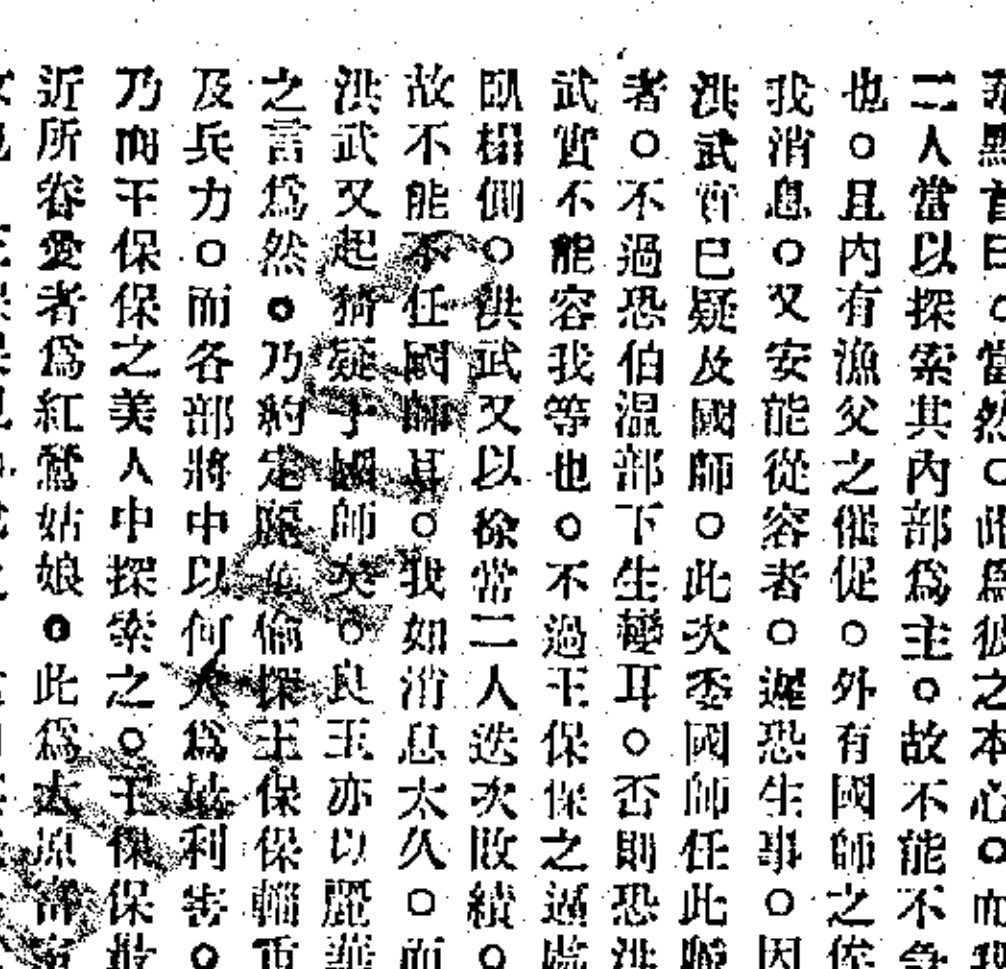 點首曰○當然○此爲彼之本心○而我
二人當以探索其內部爲主○故不能不爭
也○且內有漁父之催促○外有國師之
我消息○又安能從容者○遲恐生事○因
洪武實已疑及國師○此次委國師任此
者○不過恐伯溫部下生變耳○否則恐洪
武實不能容我等也○不過王保保之逼處
臥榻側○洪武又以徐常二人迭次敗績○
故不能不任國師耳○我如消息太久○而
洪武又起猜疑于國師矣○良玉亦以麗華
之言爲然○乃約定麗華偷探王保保輜重
及兵力○而各部將中以何人爲最利害○
乃向王保保之美人中探索之○王保保最
近所眷愛者爲紅鶯姑娘○此爲太原